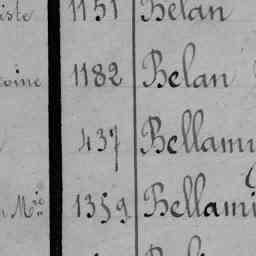 iste 1151 Belan
oine 1182 Belan
437 Bellamy
Mie 1359 Bellami